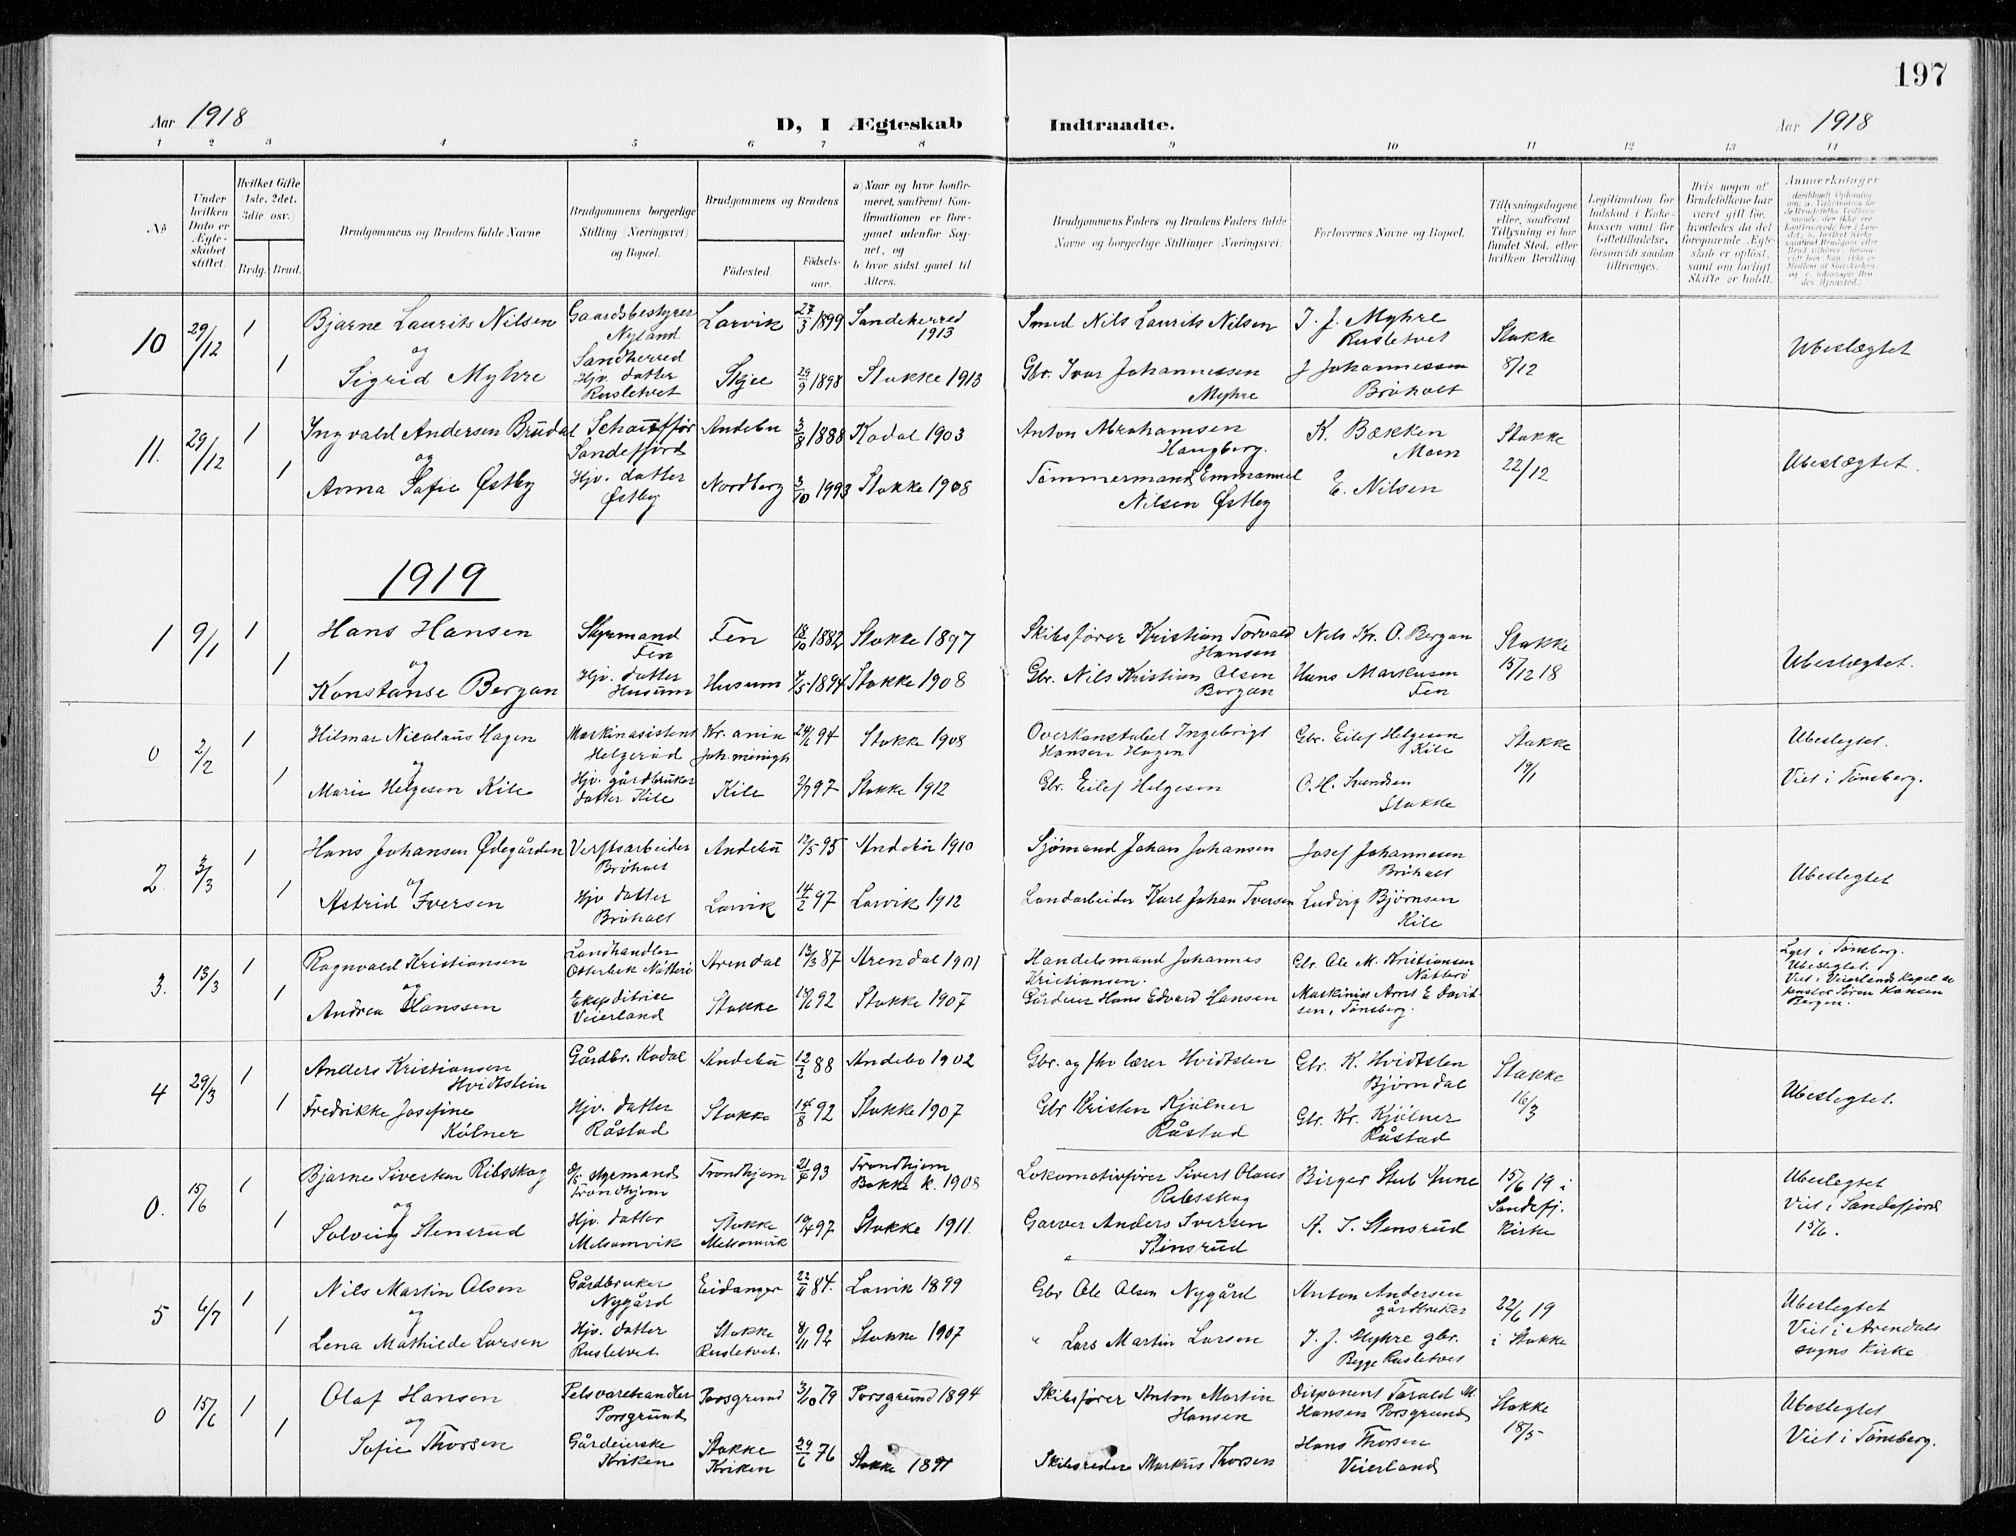 197
Aar 1918
D, I Ægteskab Indtraadte.
Aar 1918
1 2 3 4 5 6 7 8 9 10 11 12 13 14
No
Under hvilken Dato er Ægteskabet stiftet.
Hvilket Gifte 1ste, 2det, 3die osv.)
Brdg. Brud.
Brudgommens og Brudens fulde Navne
Brudgommens borgerlige Stilling (Næringsvei) og Bopæl.
Brudgommens og Brudens
Födested.
Födselsaar.
a) Naar og hvor konfirmeret, saafremt Konfirmationen er foregaaet udenfor Sognet, og
b) hvor sidst gaaet til Alters.
Brudgommens Faders og Brudens Faders fulde Navne og borgerlige Stillinger (Næringsvei)
Forlovernes Navne og Bopæl.
Tillysningsdagene eller, saafremt Tillysning ei har fundet Sted, efter hvilken Bevilling.
Legitimation for Indskud i Enkekassen samt for Giftetilladelse, forsaavidt saadan tiltrænges.
Hvis nogen af Brudefolkene har været gift för, hvorledes da det foregaaende Ægteskab er oplöst, samt om lovligt Skifte er holdt.
Anmerkninger
10 29/12 1 Bjarne Laurits Nilsen Gaardsbestyrer Nyland Sandherred Larvik 27/3 1899 Sandeherred 1913 Smed Nils Laurits Nilsen I. J. Myhre Rusletvet Stokke 8/12 Ubeslægtet
og
1 Sigrid Myhre Hjv. datter Rusletvet Skjee 29/9 1898 Stokke 1913 Gbr. Ivar Johannessen Myhre J Johannessen Bröholt
11. 29/12 1 Ingvald Andersen Brudal Schauffør Sandefjord Andebu 3/8 1888 Kodal 1903 Anton Abrahamsen Haugberg. K. Bækken Moen Stokke 22/12 Ubeslægtet.
og
1 Anna Sofie Østby Hjv. datter Østby Nordberg 3/10 1993 Stokke 1908 Tømmermand Emmanuel Nilsen Østby E. Nilsen
1919
1 9/1 1 Hans Hansen Styrmand Fen Fen 18/10 1882 Stokke 1897 Skibsfører Kristian Torvald Hansen Nels Kr. O. Bergan Stokke 15/12 18 Ubeslægtet.
og
1 Konstanse Bergan Hjv. datter Husum Husum 7/5 1894 Stokke 1908 Gbr. Nils Kristian Olsen Bergan Hans Markusen Fen
0 2/2 1 Hilmar Nicolaus Hagen Maskinasistent Helgerød Kr. ania Joh. menigh 24/6 94 Stokke 1908 Overkonstabel Ingebrigt Hansen Hagen Gbr. Eilef Helgesen Kile Stokke 19/1 Ubeslegtet.
og
1 Marie Helgesen Kile Hjv. gårdbruker datter Kile Kile 2/7 97 Stokke 1912 Gbr. Eilef Helgesen O. H. Svendsen Stokke Viet i Tønsberg.
2 3/3 1 Hans Johansen Ødegården Verftsarbeider Bröholt Andebu 12/5 95 Andebu 1910 Sjømand Johan Johansen Josef Johannesen Bröholt Ubeslegtet
og
1 Astrid Iversen Hjv datter Bröholt Larvik 14/2 97 Larvik 1912 Landarbeider Karl Johan Iversen Ludvig Bjørnsen Kile
3. 13/3 1 Ragnvald Kristiansen Landhandler Østerbek Nøtterö Arendal 13/3 87 Arendal 1901 Handelsmand Johannes Kristiansen. Gbr. Ole M. Kristiansen Nøtterö Lyst i Tønsberg. Ubeslegtet. Viet i Veierland Kapel av pastor Sören Hansen Bergen.
og
1 Andrea Hanssen Ekspditrice Veierland Stokke 10/6 92 Stokke 1907 Gårdbr Hans Edvard Hansen Maskinist Arnt E Davidsen, Tønsberg.
4 29/3 1 Anders Kristiansen Hvidtstein Gårdbr. Kodal Andebu 12/2 88 Andebo 1902 Gbr. og fhv lærer Hvidtsten Gbr. K. Hvidtsten Bjørndal Stokke 16/3 Ubeslegtet.
1 Fredrikke Josefine Kölner Hjv. datter Råstad Stokke 14/8 92 Stokke 1907 Gbr Kristen Kjölner Råstad Gbr. Kr. Kjölner Råstad
0. 15/6 1 Bjarne Sivertsen Ribsskog styrmand Trondhjem Trondhjem 21/7 93 Trondhjem Bakke k. 1908 Lokomotivfører Sivert Olaus Ribsskog Birger Stub 15/6 19 i Sandefj. Kirke Ubeslegtet Viet i Sandefjord 15/6.
og
1 Solveig Stensrud Hjv. datter Melsomvik Stokke Melsomvik 10/4 97 Stokke 1911. Garver Anders Iversen Stensrud A. I. Stensrud
5 6/7 1 Nils Martin Olsen Gårdbruker Nygård Eidanger 22/11 84. Larvik 1899 Gbr Ole Olsen Nygård Anton Andersen gårdbruker 22/6 19 i Stokke Ubeslegtet Viet i Arendals sogns kirke
og
1 Lena Mathilde Larsen Hjv. datter Rusletvet. Stokke Rusletvet. 8/11 92 Stokke 1907 " Lars Martin Larsen I. J. Myhre gbr. Begge Rusletvet
0 15/6 1 Olaf Hansen Pelsvarehandler Porsgrund Porsgrund 3/10 79 Porsgrund 1894 Skibsfører Anton Martin Hansen Disponent Torald M. Hansen Porsgrund Stokke 18/5 Ubeslegtet
og
1 Sofie Thorsen Gårdeierske Kriken Stokke Kriken 29/6 76 Stokke 1891 Skibsreder Markus Thorsen Hans Thorsen Veierland Viet i Tønsberg.